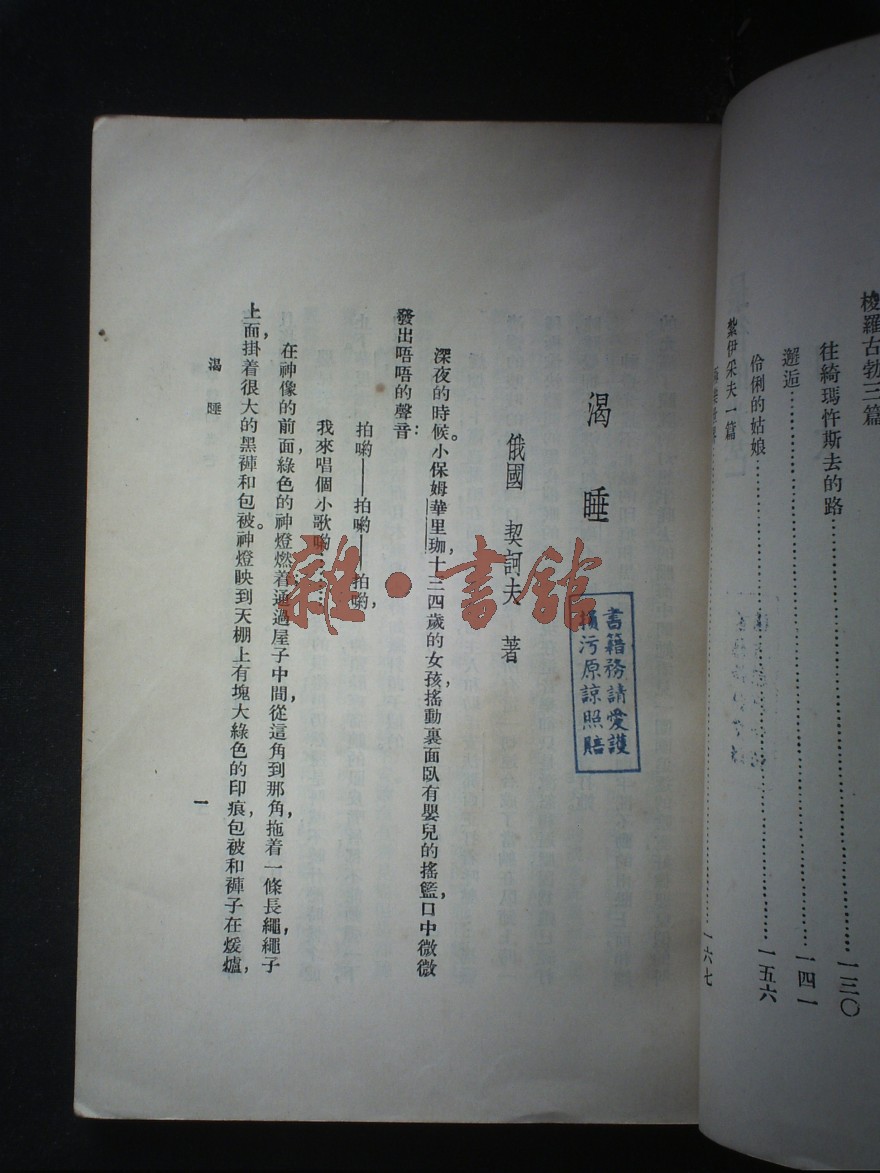 梭羅古勃三篇
往綺瑪忤斯去的路……一三〇
邂逅……一四一
伶俐的姑娘……一五六
紮伊采夫一篇
……一六七
渴睡
俄國 契訶夫 著
書籍務請愛護
損污原諒照賠
深夜的時候。小保姆華里珈，十三四歲的女孩搖動裏面臥有嬰兒的搖籃，口中微微
發出唔唔的聲音：
拍喲——拍喲——拍喲，
我來唱個小歌喲……
在神像的前面，綠色的神燈燃着；通過屋子中間，從這角到那角，拖着一條長繩，繩子
上面掛着很大的黑褲和包被。神燈映到天棚上有塊大綠色的印痕，包被和褲子在煖爐，
渴睡
一
雜·書館